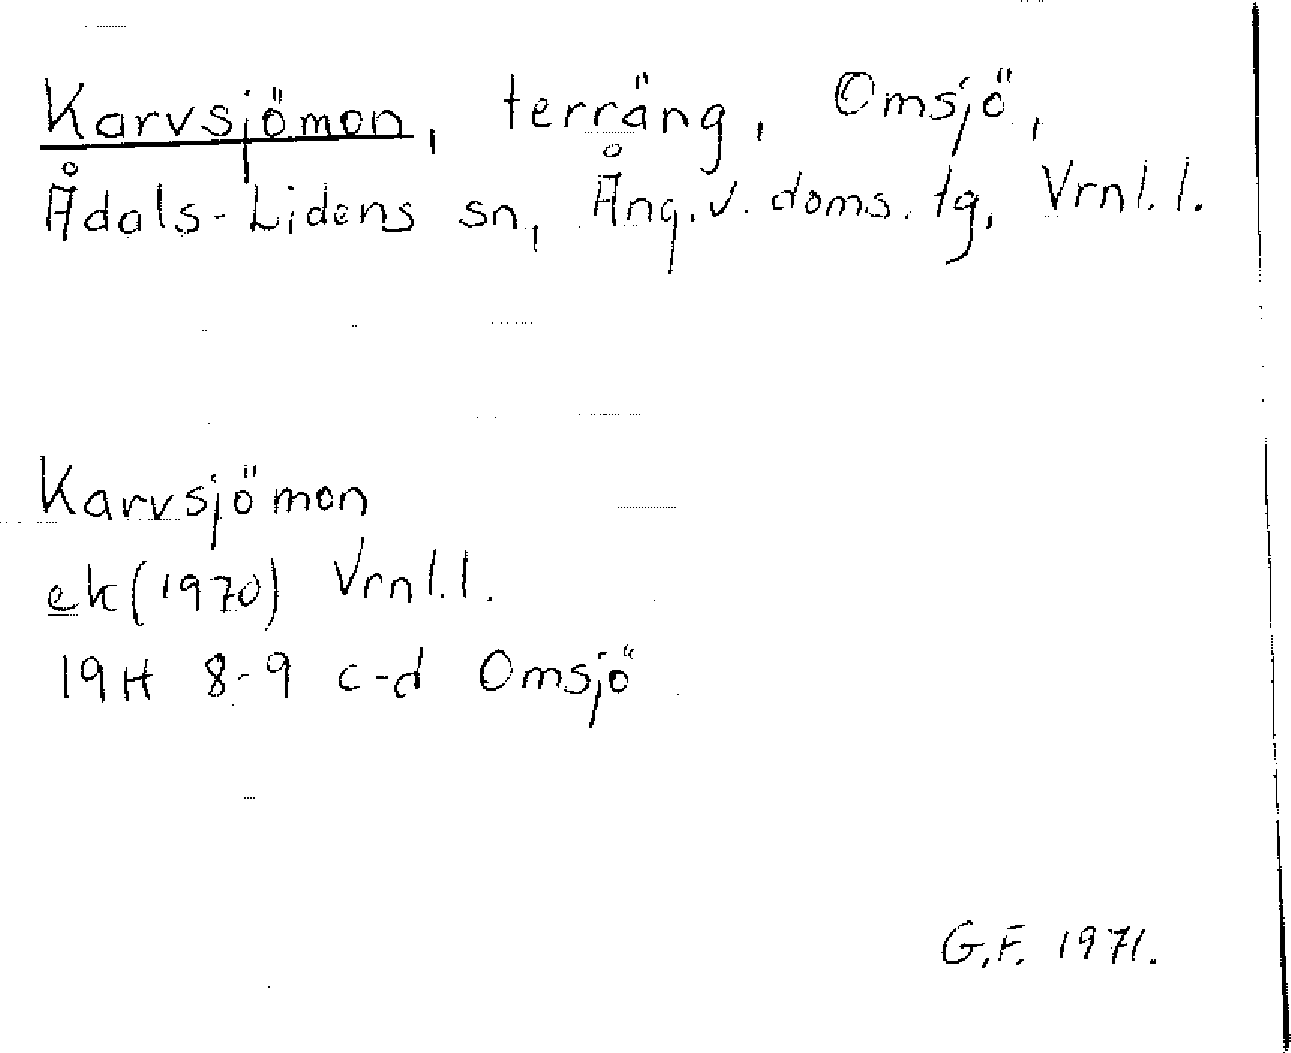 Karvsjömon, terräng, Omsjö,
Ådals-Lidens sn, Ång. v. doms. tg, Vrnl. l.
Karvsjömon
ek (1970) Vrnl. l.
19H 8-9 c-d Omsjö
G.F. 1971.